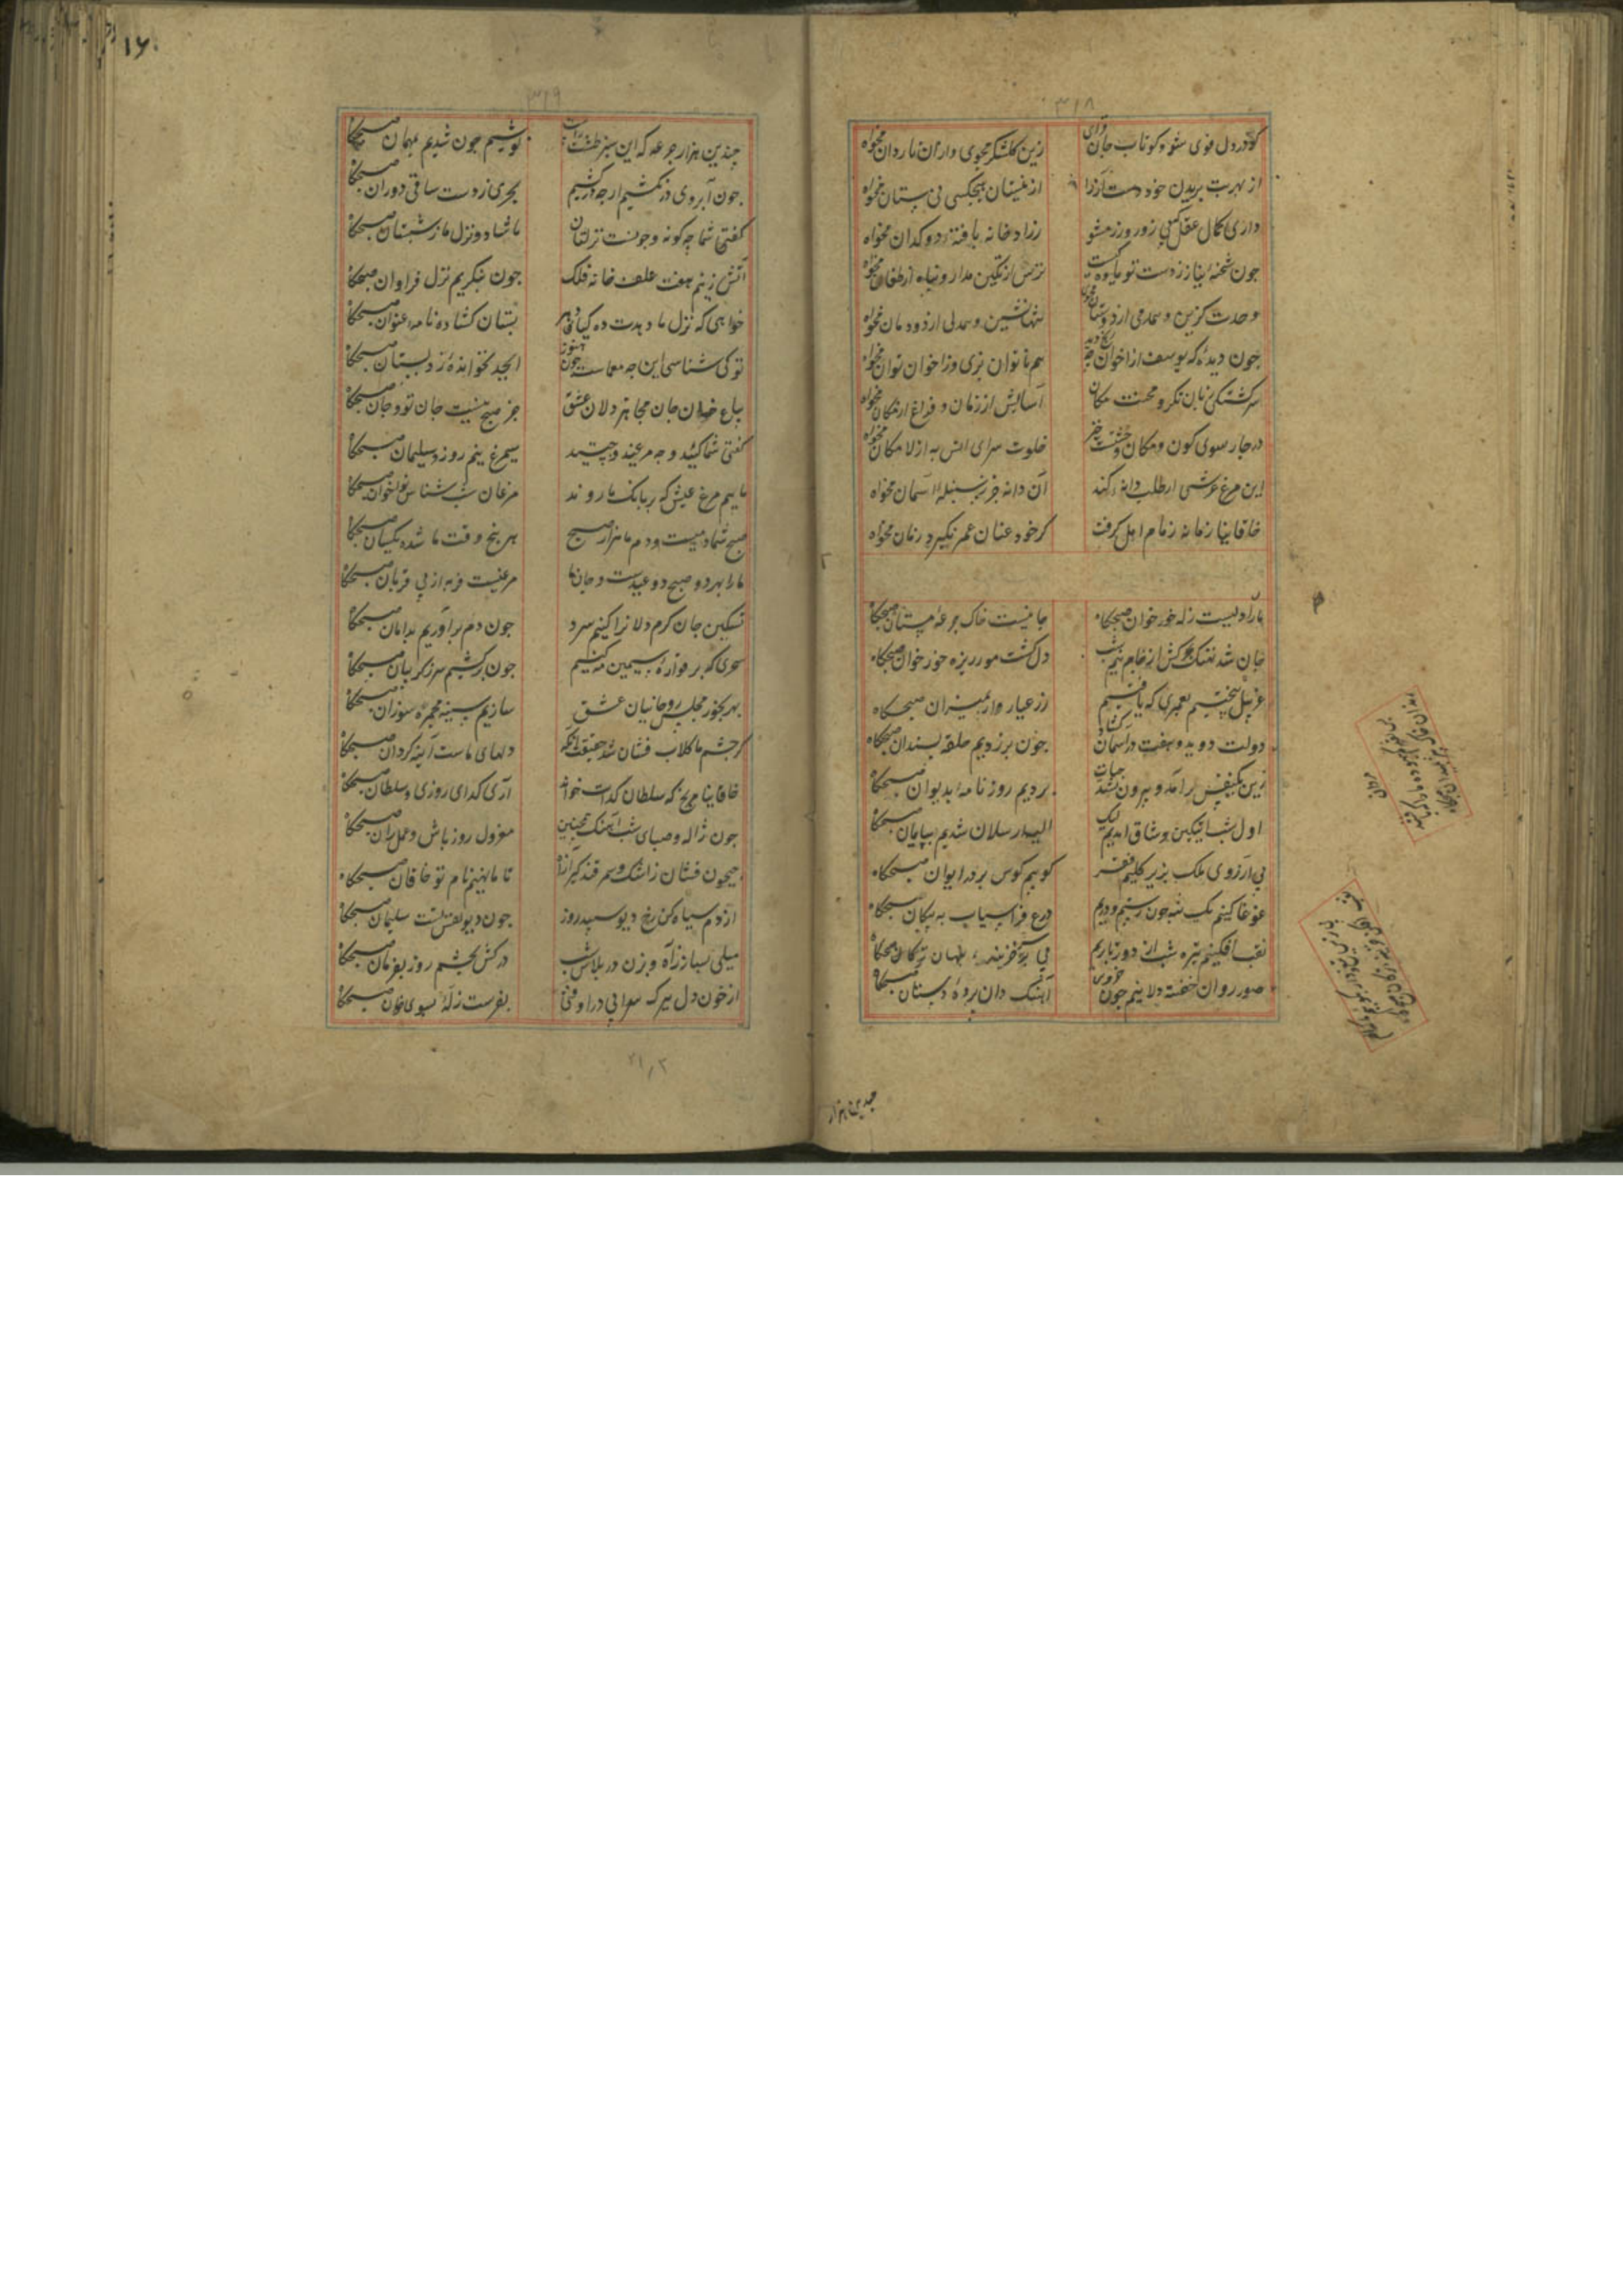 ۳۱۸
کو در دل قوی شو و کو تاب جان
زین گلشکر مجوی و از آن ناردان مخواه
از بهر بریدن خود دست آز را
از نیستان
داری کمال عقل پی زور و زر مشو
زراد خانه یافته دوکدان مخواه
جون شحنه نیاز ز دست تو
ترس از تکین مدار و پناه از طغان مخواه
وحدت گزین و همدمی از دوستان مجوی
تنها نشین و همدلی از دودمان مخواه
جون دیدهٔ که یوسف از اخوان چه رنج دید
هم ناتوان بزی و ز اخوان توان مخواه
سرگشتگی زبان نگر و محنت مکان
آسایش از زمان و فراغ از مکان مخواه
در جار سوی کون و مکان وحشت
خلوت سرای انس به از لامکان مخواه
این مرغ عرشی ار طلب دانهٔ کند
آن دانه جز ز سنبله آسمان مخواه
خاقانیا زمانه زمام امل گرفت
گر خود عنان عمر نگیرد زمان مخواه
ما را دلیست زله خور خوان صبحگاه
جانیست خاک جرعهٔ مستان صبحگاه
جان شد نهنگ بحرکش از جام نیم شب
دل گشت مور ریزه خور خوان صبحگاه
غربیل بیختیم بعمری که یافتیم
زر عیار وار بمیزان صبحگاه
دولت دوید و هفت در آسمان گشاد
جون برزدیم حلقه بسندان صبحگاه
زین یکنفس برآمد و بیرون شد حیات
بردیم روزنامه بدیوان صبحگاه
اول شب ایتکین وشاق آمدیم لیک
الب ارسلان شدیم بپایان صبحگاه
بی آرزوی ملک بزیر گلیم فقر
کوبیم کوس بر در ایوان صبحگاه
غوغا کنیم یک تنه جون رستم و دریم
درع فراسیاب به پیکان صبحگاه
نقب افکنیم نیم شب از دور تا بریم
پی بر خزینه پنهان صبحگاه
صور روان خفته دلانیم جون خروس
آهنگ دان پرده دستان صبحگاه
جندین هزار
۳۱۹
جندین هزار جرعه که این سبز طشت راست
نوشیم جون شدیم مهمان صبحگاه
جون آبروی در نکشیم ار جه درکشیم
بحری ز دست ساقی دوران صبحگاه
گفتی شما جه گونه و جونست نزلتان
ما شاد و نزل ما ز شبستان صبحگاه
آتش زنیم هفت علف خانه فلک
جون بنگریم نزل فراوان صبحگاه
خواهی که نزل ما دهدت ده کیای دهر
بستان گشاده نامه عنوان صبحگاه
تو کی شناسی این جه معماست جون هنوز
ابجد نخوانده ز دبستان صبحگاه
باغ خوان جان مجاهز دلان عشق
جز صبح نیست جان تو و جان صبحگاه
گفتی شما کئید و جه مرغید و جیستید
سیمرغ نیمروز و سلیمان صبحگاه
ماییم مرغ عرش که بر بانگ ما روند
مرغان شب شناس نواخوان صبحگاه
صبح شما دمیست و دم ما هزار صبح
هر پنج وقت ما شده یکسان صبحگاه
ما را بهر دو صبح دو عیدست و جان ما
مرغیست فربه از پی قربان صبحگاه
تسکین جان گرم دلانرا کنیم سرد
جون دم برآوریم بدامان صبحگاه
جون برکشیم سر ز گریبان صبحگاه
بهر بخور مجلس روحانیان عشق
سازیم سینه مجمره سوزان صبحگاه
گر جشم ما گلاب فشان شد حقست ازانکه
دلهای ماست آینه گردان صبحگاه
خاقانیا مرنج که سلطان گدات خواند
آری گدای روزی و سلطان صبحگاه
جون ژاله و صبای شب آهنگ همچنین
معزول روز باش و عمل ران صبحگاه
جیحون فشان ز اشک و سمرقند گیر ازاه
تا ما نهیم نام تو خاقان صبحگاه
از دم سیاه کن رخ دیو سپید روز
جون دیو نفس تست سلیمان صبحگاه
میلی بساز ز آه و بزن در بلاس شب
درکش بجشم روز بفرمان صبحگاه
از خون دل
بفرست زله سوی خوان صبحگاه